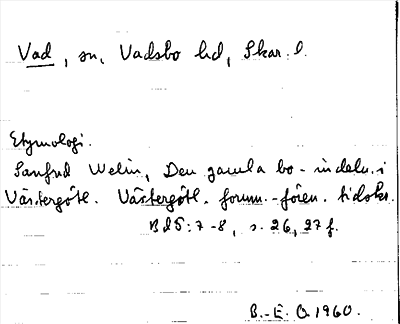 Vad, sn, Vadsbo hd, Skar. l.
Etymologi.
Sanfrid Welin, Den gamla bo-indeln. i
Västergötl. Västergötl. fornm.-fören. tidskr.
Bd 5:7-8, s. 26, 27 f.
B.-E. O. 1960.